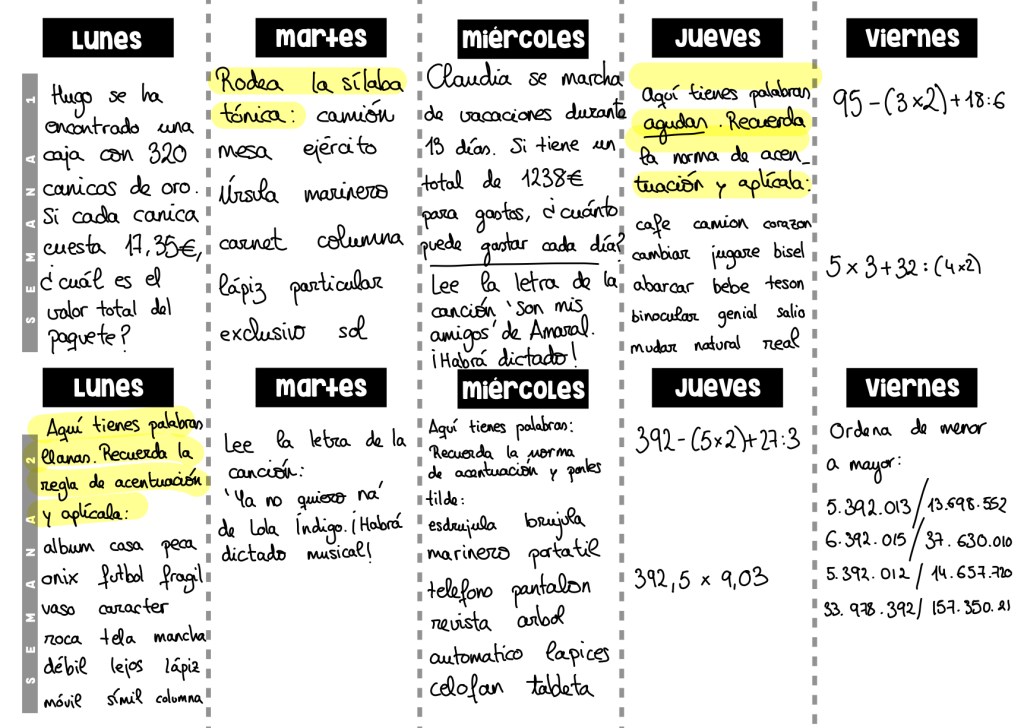 LUNES
Hugo se ha
encontrado una
caja con 320
canicas de oro.
Si cada canica
cuesta 17,35€,
¿cuál es el
valor total del
paquete?
martes
Rodea la sílaba
tónica: camión
mesa ejército
Úrsula marinero
carnet columna
lápiz particular
exclusivo sol
miércoles
Claudia se marcha
de vacaciones durante
13 días. Si tiene un
total de 1238€
para gastos, ¿cuánto
puede gastar cada día?
Lee la letra de la
canción 'Son mis
amigos' de Amaral.
¡Habrá dictado!
Jueves
Aquí tienes palabras
agudas. Recuerda
la norma de acen_
tuación y aplícala:
cafe camion corazon
cambiar jugare bisel
abarcar bebe teson
binocular genial salio
mudar natural real
viernes
95-(3×2)+18:6
5×3+32:(4×2)
SEMANA 1
LUNES
Aquí tienes palabras
llanas. Recuerda la
regla de acentuación
y aplícala:
album casa peca
onix futbol fragil
vaso caracter
roca tela mancha
débil lejos lápiz
móvil símil columna
martes
Lee la letra de la
canción:
'Ya no quiero ná'
de Lola Índigo. ¡Habrá
dictado musical!
miércoles
Aquí tienes palabras:
Recuerda la norma
de acentuación y ponles
tilde:
esdrujula brujula
marinero portatil
telefono pantalon
revista arbol
automatico lapices
celofan tableta
Jueves
392-(5×2)+27:3
392,5 × 9,03
viernes
Ordena de menor
a mayor:
5.392.013/13.698.552
6.392.015/37.630.010
5.392.012/14.657.720
33.978.392/157.350.21
SEMANA 2